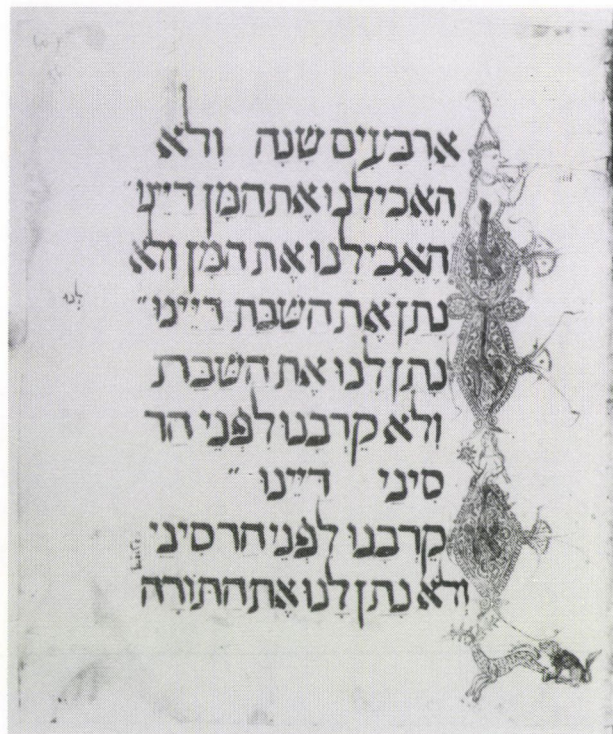 אַרְבָּעִים שָׁנָה וְלֹא
הֶאֱכִילָנוּ אֶת הַמָּן דַּיֵּינוּ״
הֶאֱכִילָנוּ אֶת הַמָּן וְלֹא
נָתַן אֶת הַשַּׁבָּת דַּיֵּינוּ״
נָתַן לָנוּ אֶת הַשַּׁבָּת
וְלֹא קֵרְבָנוּ לִפְנֵי הַר
סִינַי דַּיֵּינוּ״
קֵרְבָנוּ לִפְנֵי הַר סִינַי
וְלֹא נָתַן לָנוּ אֶת הַתּוֹרָה